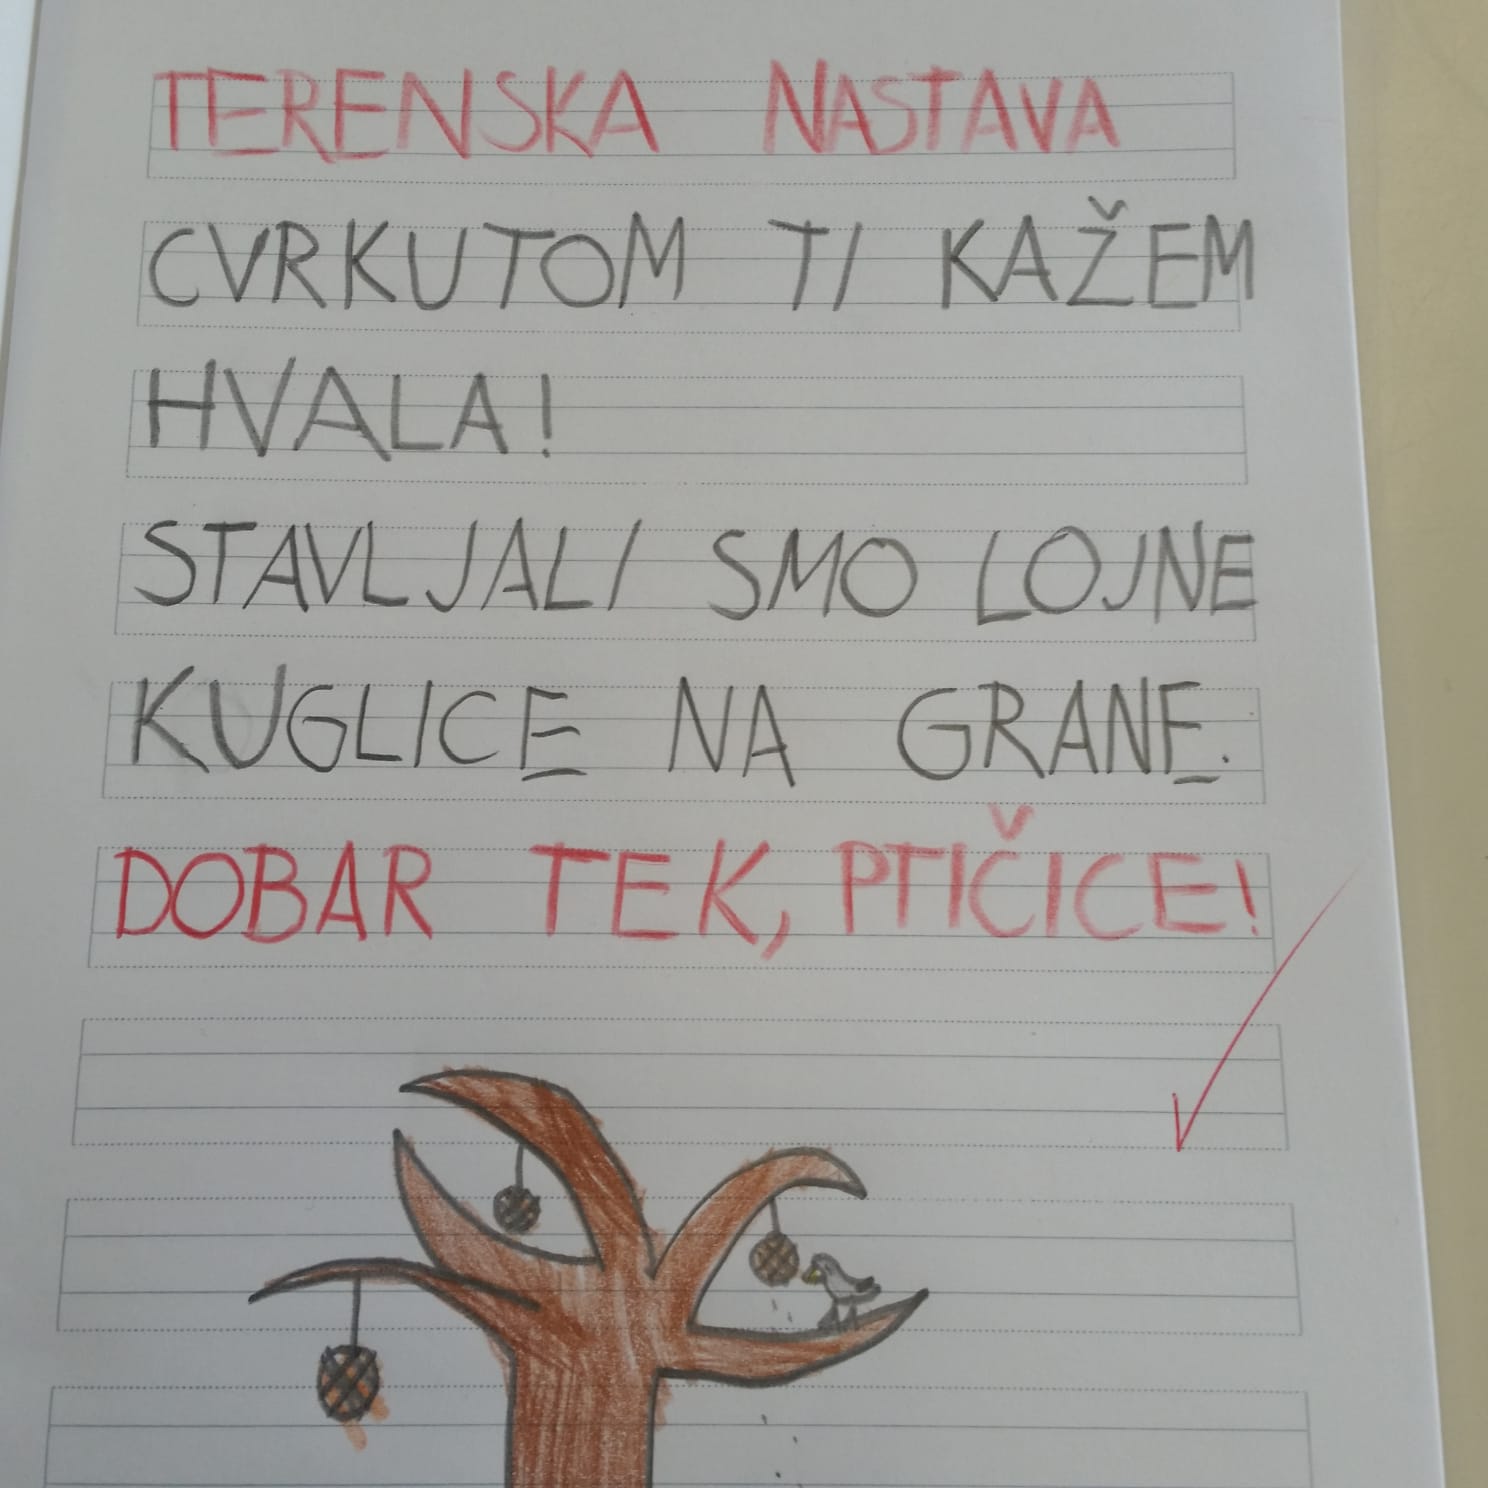 TERENSKA NASTAVA
CVRKUTOM TI KAŽEM
HVALA!
STAVLJALI SMO LOJNE
KUGLICE NA GRANE.
DOBAR TEK, PTIČICE!